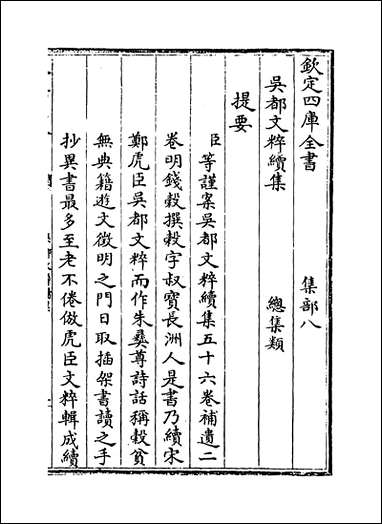 欽定四庫全書　集部八
吳都文粹續集　總集類
提要
臣等謹案吳都文粹續集五十六卷補遺二
卷明錢穀撰穀字叔寶長洲人是書乃續宋
鄭虎臣吳都文粹而作朱彝尊詩話稱穀貧
無典籍遊文徵明之門日取插架書讀之手
抄異書最多至老不倦倣虎臣文粹輯成續